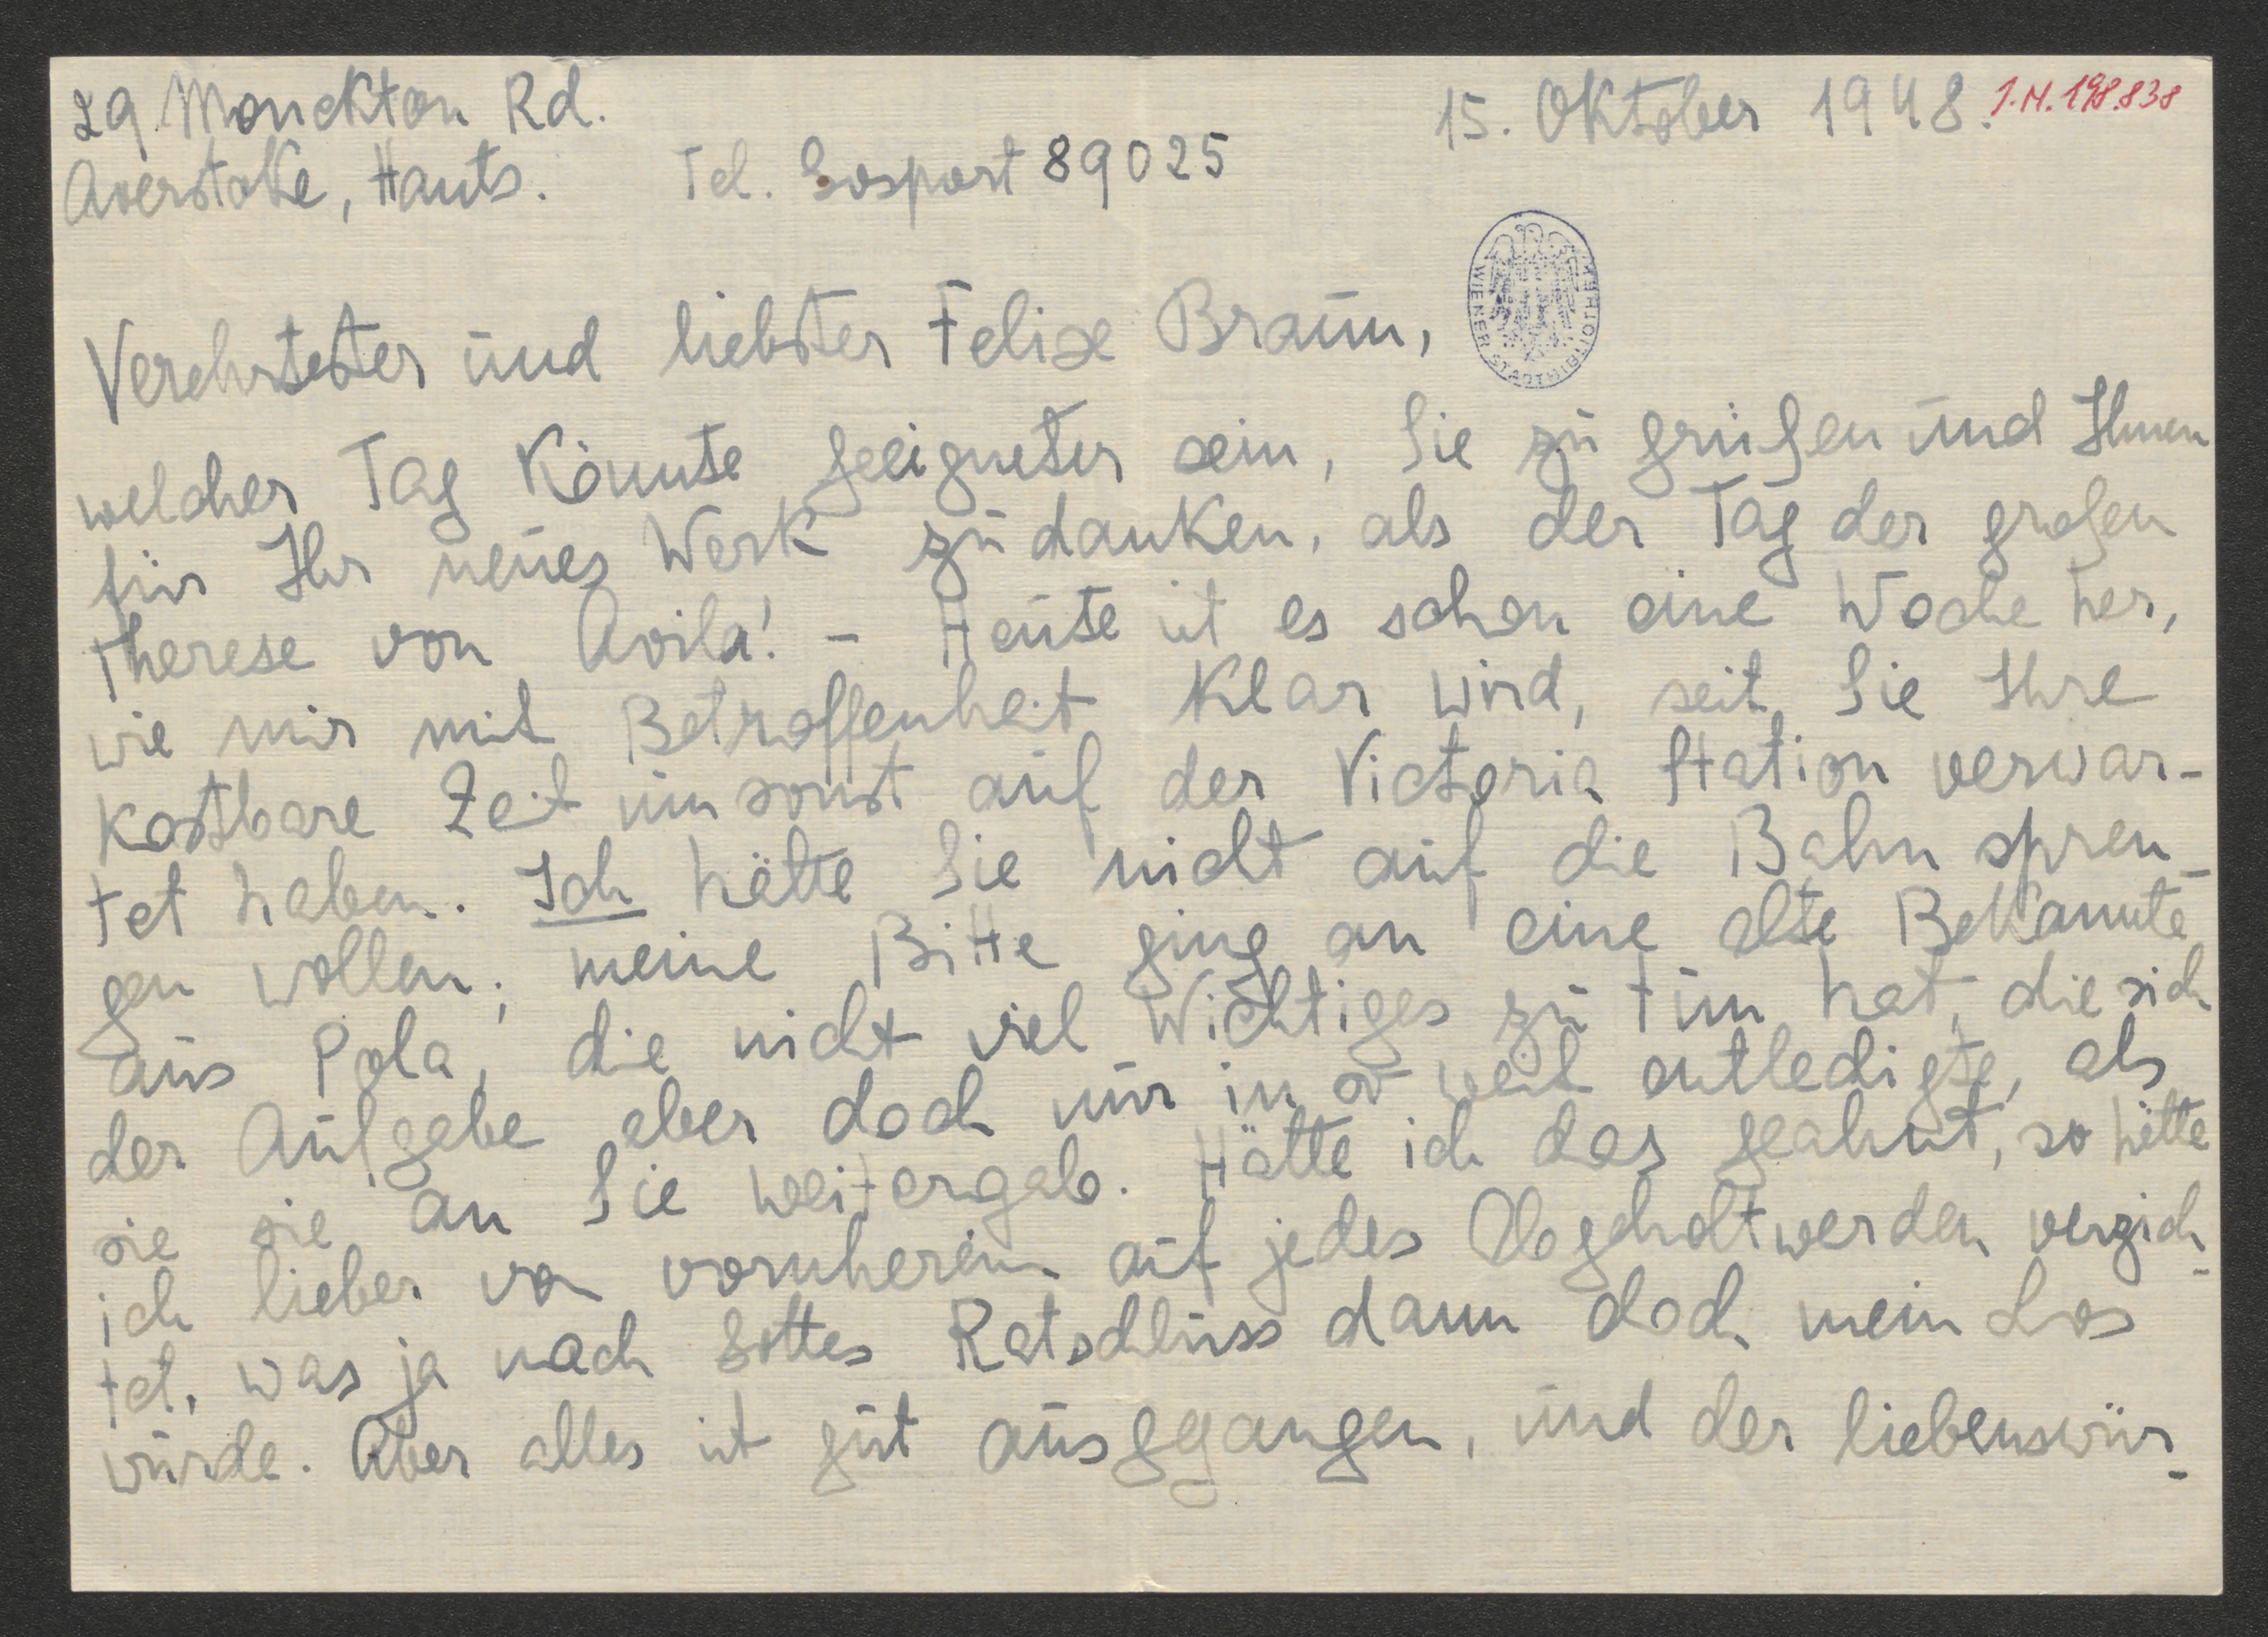 29 Monckton Rd.
15. Oktober 1948.
I.N. 198.838
Alverstoke, Hants. Tel. Gosport 89025
WIENER STADTBIBLIOTHEK
Verehrtester und liebster Felix Braun,
welcher Tag könnte geeigneter sein, Sie zu grüßen und Ihnen
für Ihr neues Werk zu danken, als der Tag der großen
Therese von Avila! – Heute ist es schon eine Woche her,
wie mir mit Betroffenheit klar wird, seit Sie Ihre
kostbare Zeit umsonst auf der Victoria Station verwar-
tet haben. Ich hätte Sie nicht auf die Bahn spren-
gen wollen; meine Bitte ging an eine alte Bekannte
aus Pola, die nicht viel Wichtiges zu tun hat, die sich
der Aufgabe aber doch nur in so weit entledigte, als
sie sie an Sie weitergab. Hätte ich das geahnt, so hätte
ich lieber von vornherein auf jedes Abgeholtwerden verzich-
tet, was ja nach Gottes Ratschluss dann doch mein Los
wurde. Aber alles ist gut ausgegangen, und der liebenswür-